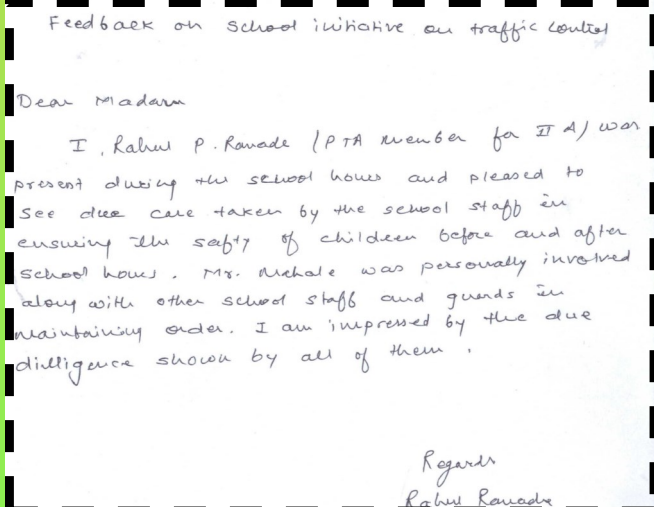 Feedback on school initiative on traffic control
Dear Madam
I, Rahul P. Ranade (PTA member for II A) was
present during the school hours and pleased to
see due care taken by the school staff in
ensuring the safty of children before and after
school hours. Mr. Mehale was personally involved
along with other school staff and guards in
maintaining order. I am impressed by the due
dilligence shown by all of them.
Regards
Rahul Ranade